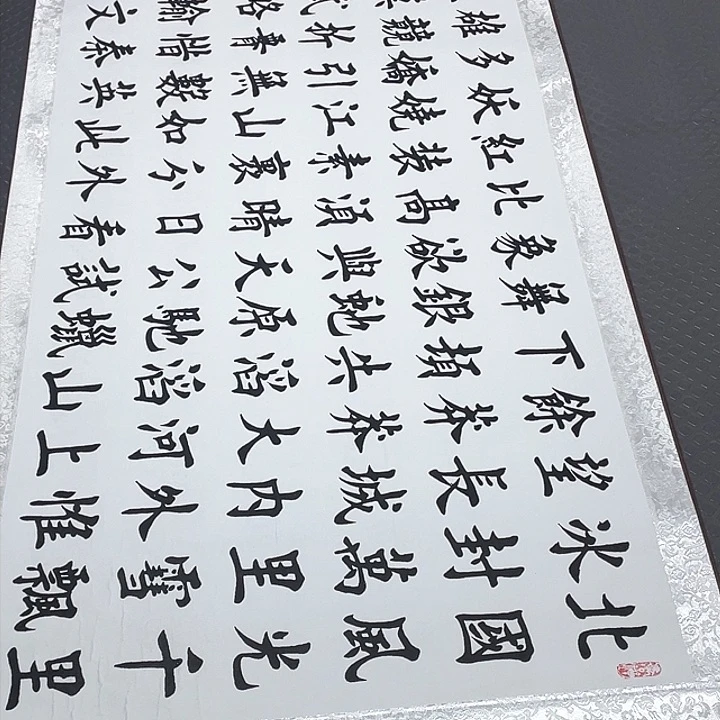 北國風光千里
冰封萬里雪飄
望長城内外惟
餘莽莽大河上
下頓失滔滔山
舞銀蛇原馳蠟
象欲與天公試
比高須晴日看
紅裝素裹分外
妖嬈江山如此
多嬌引無數英
雄競折腰惜秦
武略輸文